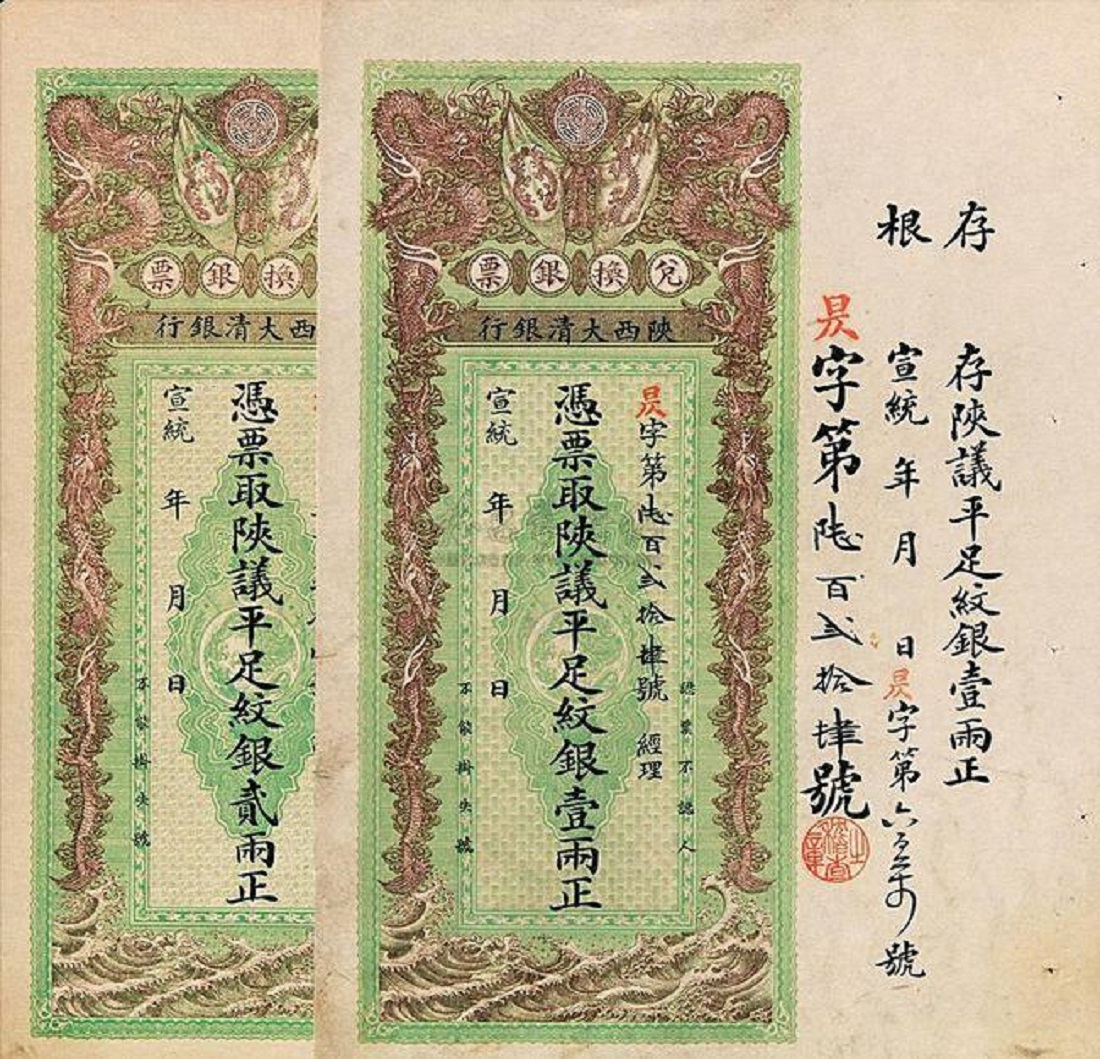 存根
存陝議平足紋銀壹兩正
宣統 年 月 日 昃字第 號
昃字第陸百弍拾肆號
兌換銀票
陝西大清銀行
昃字第陸百弍拾肆號 經理
認票不認人
憑票取陝議平足紋銀壹兩正
宣統 年 月 日
不能掛失號
換銀票
西大清銀行
憑票取陝議平足紋銀貳兩正
宣統 年 月 日
不能掛失號